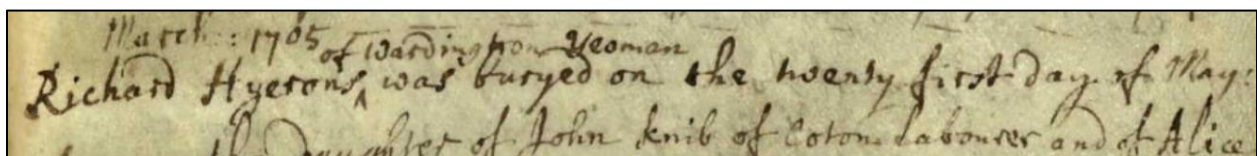 March : 1705
of Wardington Yeoman
Richard Hyerons ‸ was buryed on the twenty first day of May:
the Daughter of John Knib of Coton Labourer and of Alice